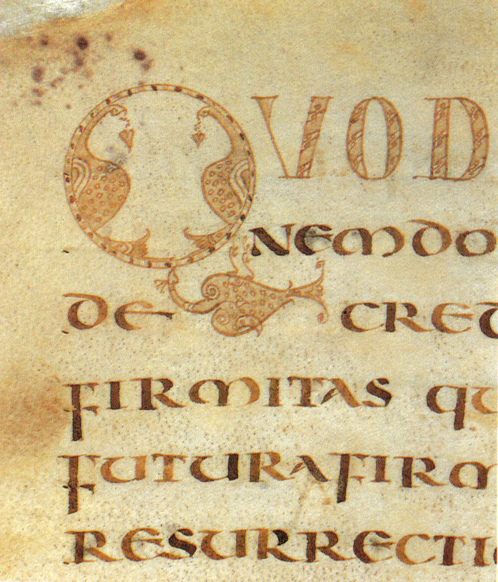 QVOD
NEMDO
DE CRED
FIRMITAS QU
FUTURAFIRM
RESURRECTI